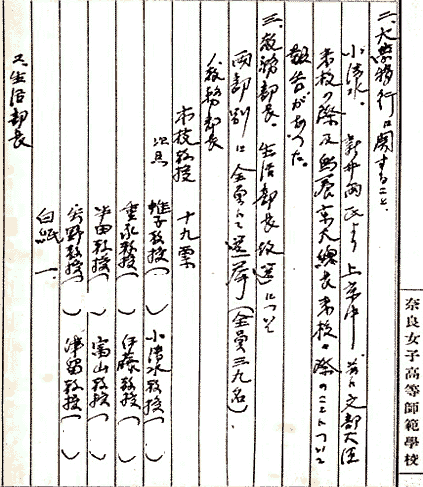 奈良女子高等師範學校
二、大學移行に関すること、
小清水、新井両氏より上京中 文部大臣
来校の際及 京大總長来校の際のことについて
報告があった。
三、教務部長、生活部長改選について
両部別に全員にて選挙(全員三九名)、
1、教務部長
本枝教授 十九票
次点 教授( ) 小清水教授( )
重永教授( ) 伊藤教授( )
半田教授( ) 富山教授( )
矢野教授( ) 津留教授( )
白紙 一
2、生活部長